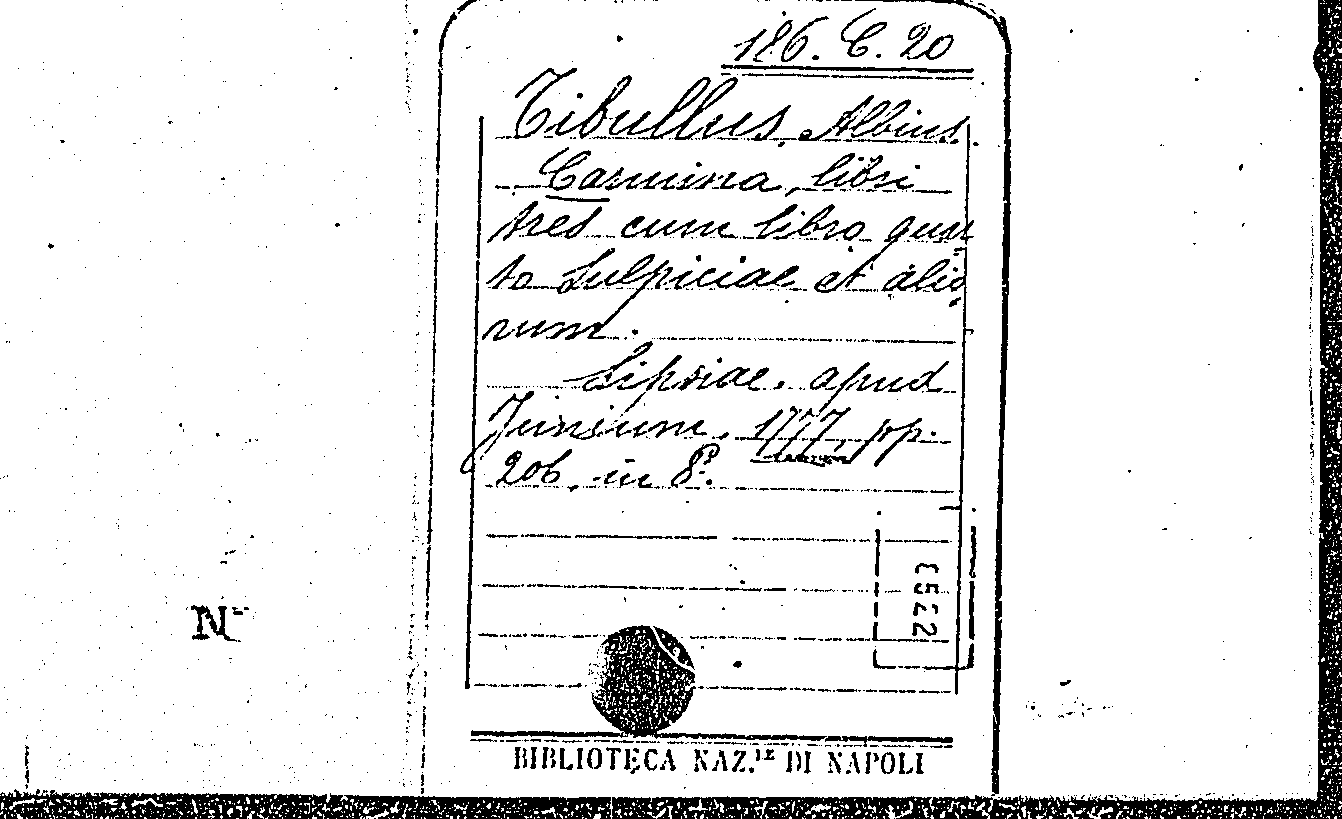 186. C. 20
Tibullus, Albius.
Carmina, libri
tres cum libro quar
to Sulpiciae et alio
rum.
Lipsiae. apud
Junium. 1777, pp.
206, in 8º.
N
BIBLIOTECA NAZ.LE DI NAPOLI